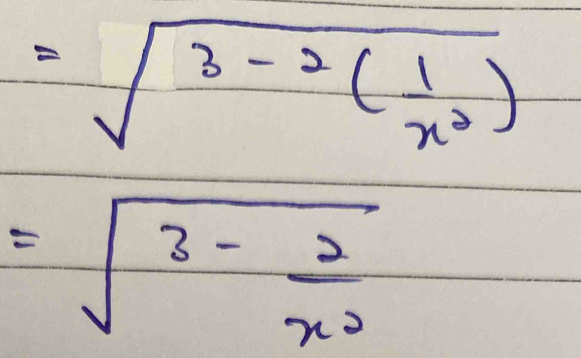 = √(3 - 2(1/x²))
= √(3 - 2/x²)